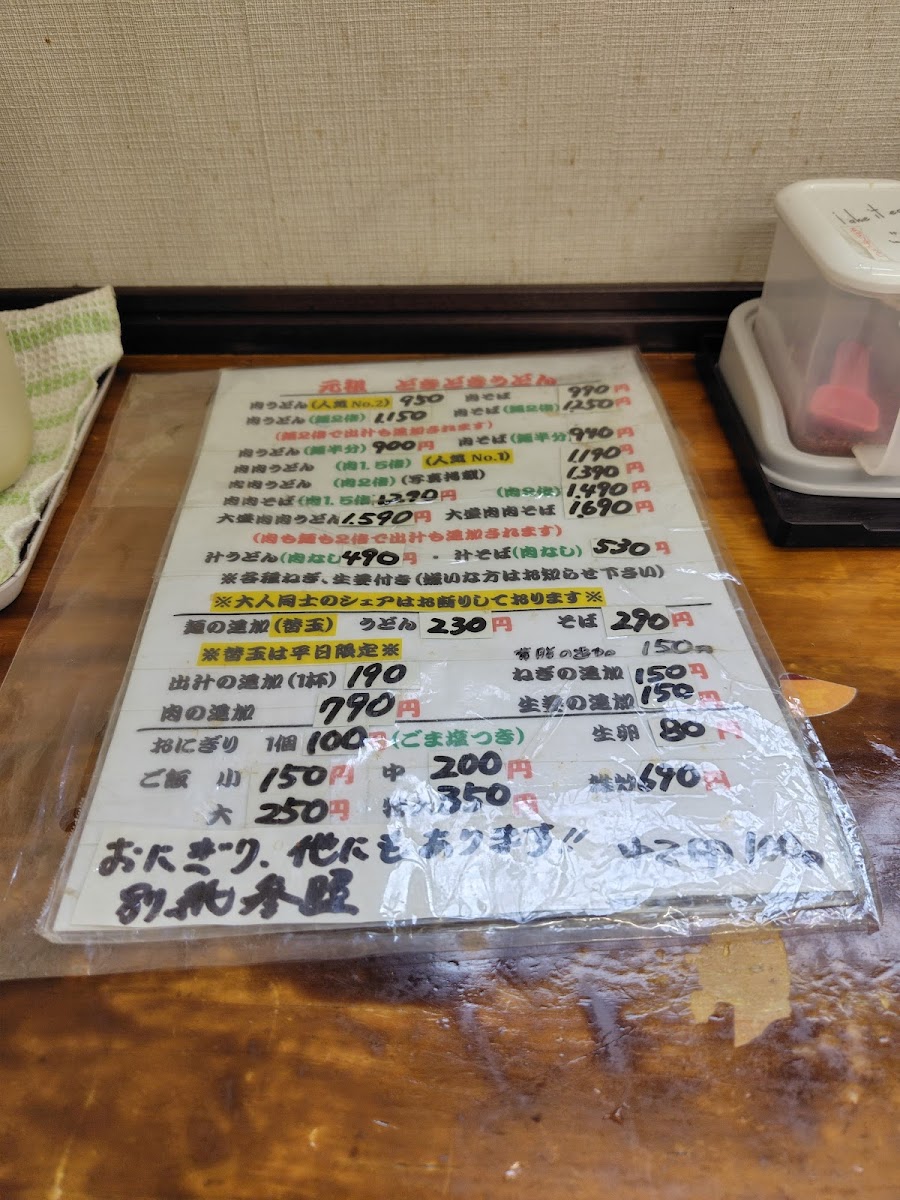 元祖 どきどきうどん
肉うどん(人気No.2) 950 肉そば 990円
肉うどん(麺2倍) 1,150 肉そば(麺2倍) 1,250円
(麺2倍で出汁も追加されます)
肉うどん(麺半分) 900円 肉そば(麺半分) 940円
肉肉うどん (肉1.5倍) (人気No.1) 1,190円
肉肉うどん (肉2倍) (写真掲載) 1,390円
肉肉そば(肉1.5倍) 1,290円 (肉2倍) 1,490円
大盛肉肉うどん 1,590円 大盛肉肉そば 1,690円
(肉も麺も2倍で出汁も追加されます)
汁うどん(肉なし) 490円 ・ 汁そば(肉なし) 530円
※各種ねぎ、生姜付き(嫌いな方はお知らせ下さい)
※大人同士のシェアはお断りしております※
麺の追加(替玉) うどん 230円 そば 290円
※替玉は平日限定※ の追加 150円
出汁の追加(1杯) 190 ねぎの追加 150円
肉の追加 790円 生姜の追加 150円
おにぎり 1個 100円 (ごま塩つき) 生卵 80円
ご飯 小 150円 中 200円 雑炊 690円
大 250円 特大 350円
おにぎり、他にもあります!!
別紙参照